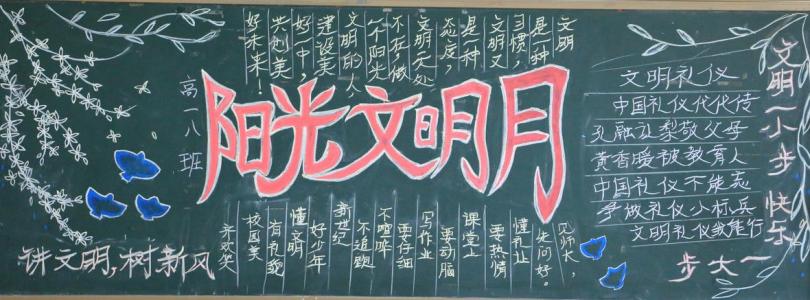 阳光文明月
高一八班
文明
是一种
习惯,
文明又
是一种
态度
文明无处
不在,做
个阳光
文明的人
建设美
好中,
共创美
好未来!
见师长,
先问好。
懂礼让
要热情
课堂上
要动脑
写作业
要仔细
不喧哗
不追跑
新世纪
好少年
懂文明
有礼貌
校园美
讲文明,树新风
文明礼仪
中国礼仪代代传
孔融让梨敬父母
黄香暖被教育人
中国礼仪不能忘
争做礼仪小标兵
文明礼仪我能行
文明一小步 快乐
一大步